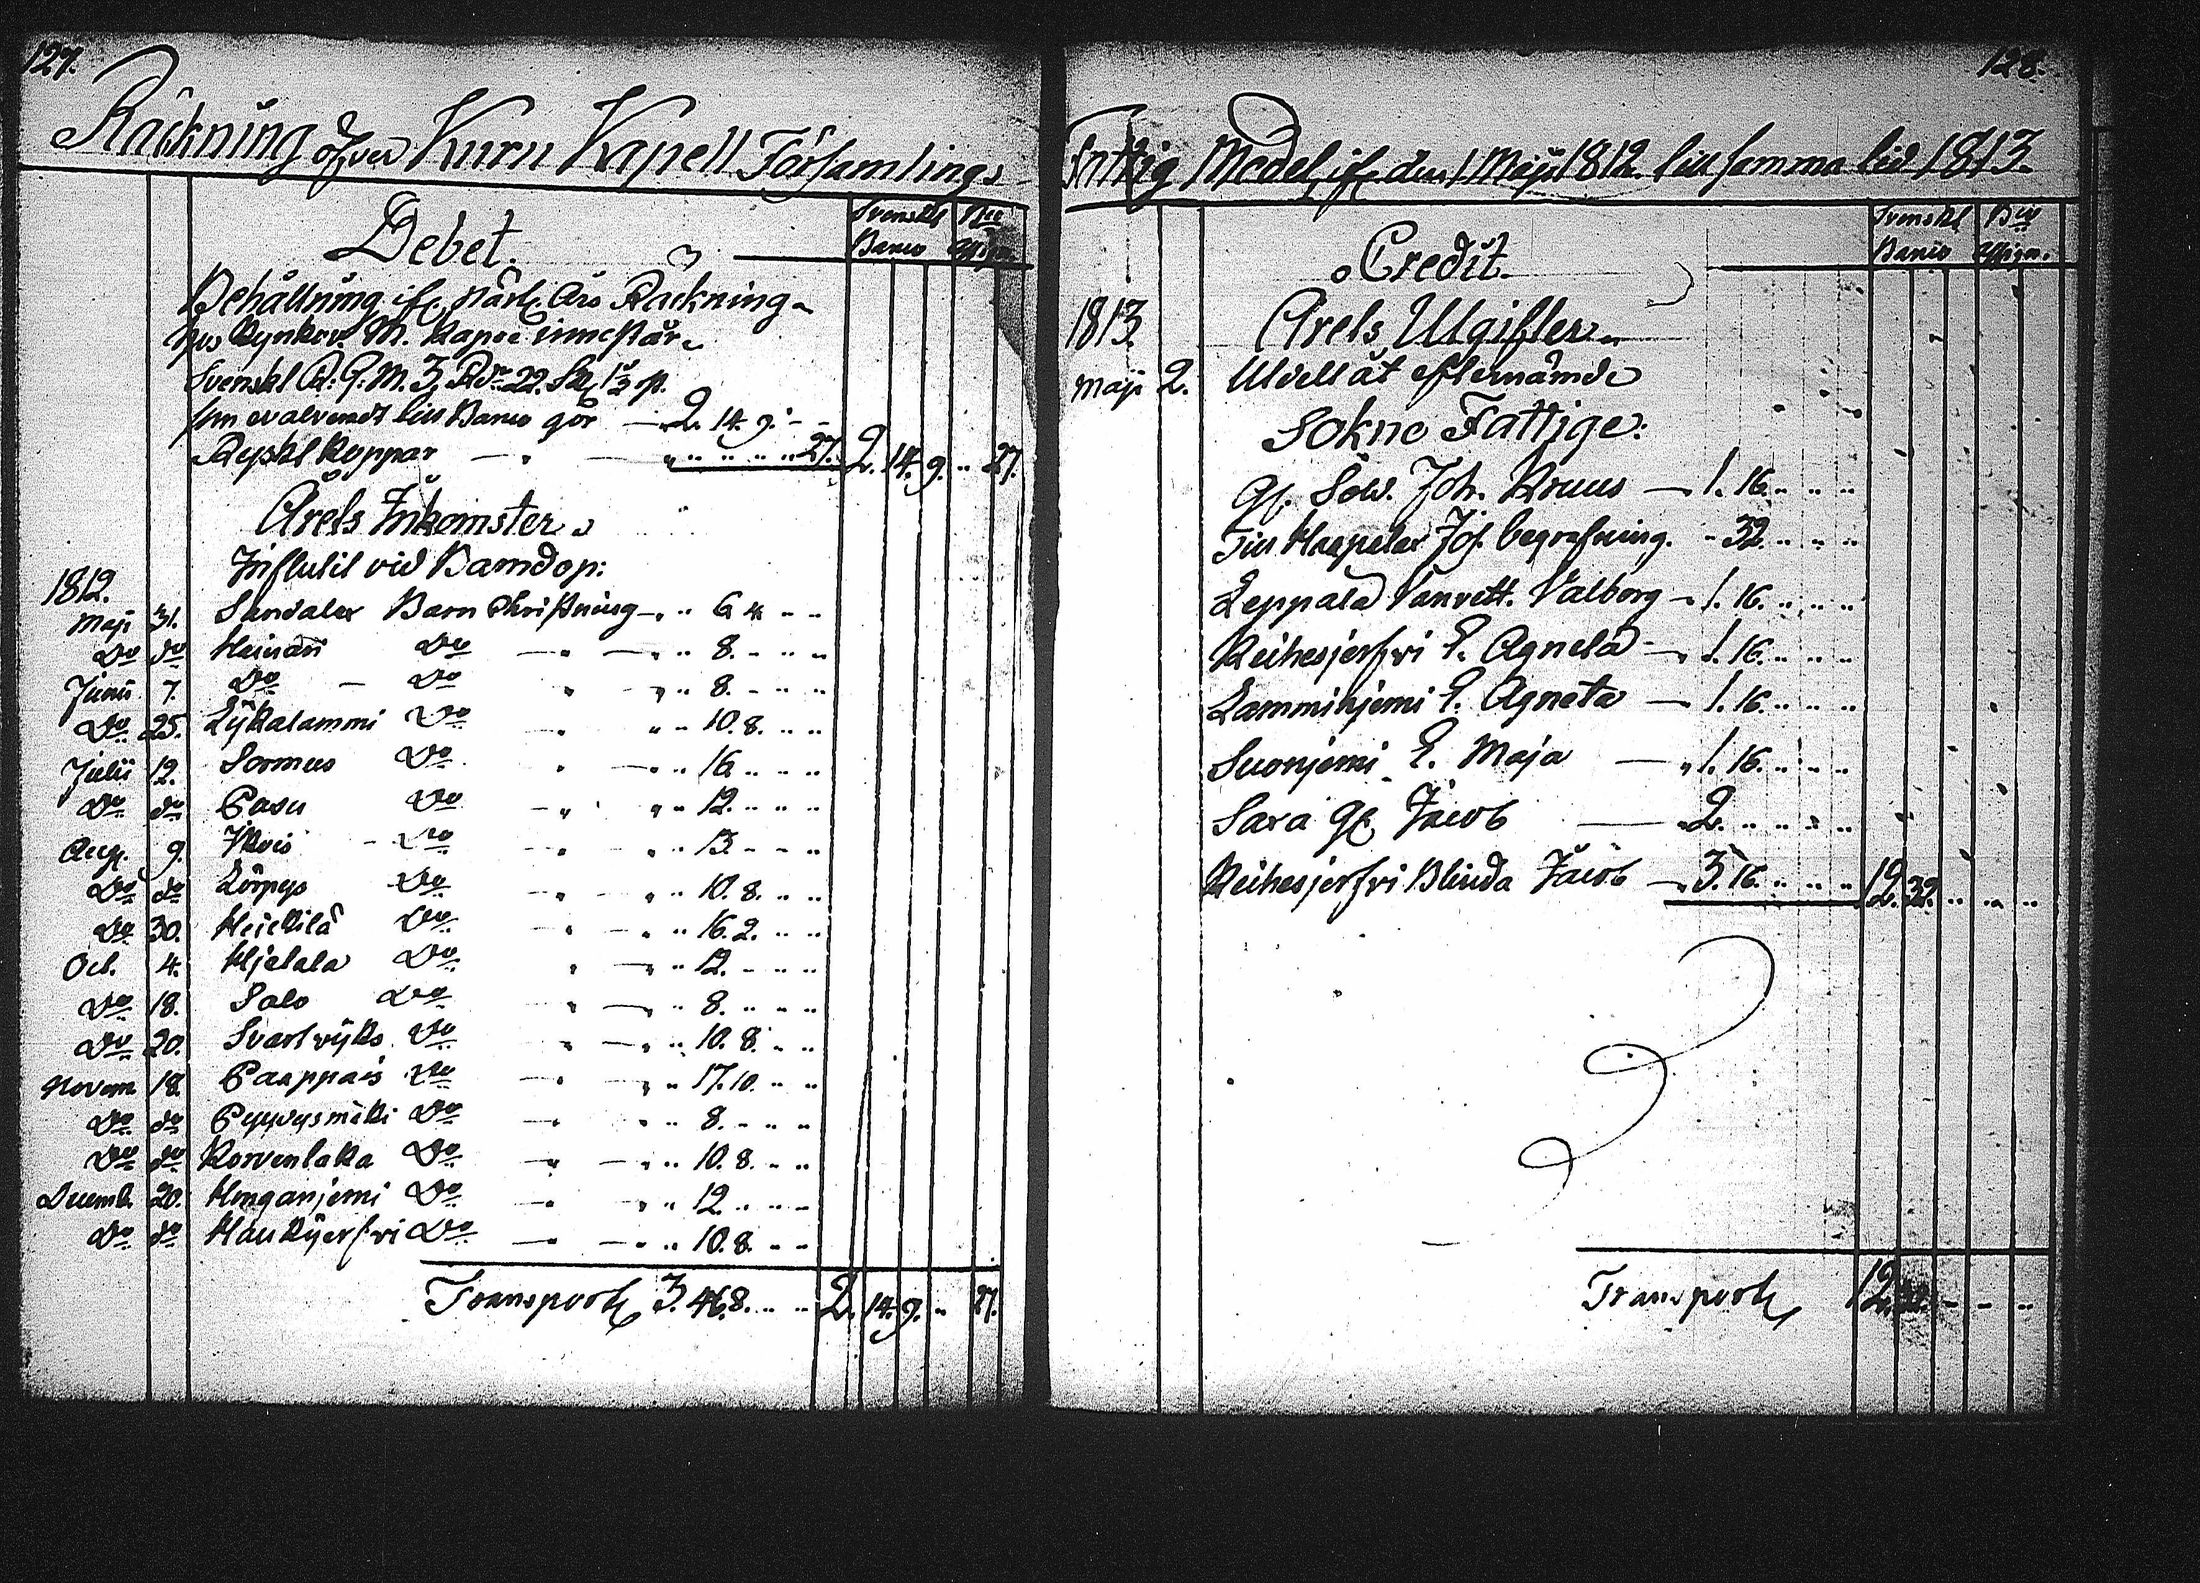 127.
Räckning öfver Kuru Kapell Församlings
Debet.
Svenskt Banco
Bco Assign.
Behållning ifr. näst. Års Räckning
hos Kyrkov. M. Kapee innestår
Svenskt R: G: M. 3 Rdr 22. Sk. 1⅓ rp.
som evalverat till Banco gör — 2. 14. 9. - -
Ryskt Koppar — " — " .. .. .. 27. 2. 14. 9. .. 27.
Årets Inkomster
Influtit vid Barndop:
1812.
Maji 31. Sandales Barn Christning — " .. 6 4 .. ..
Do do Heinäri Do — " — " .. 8. - .. ..
Junii 7. Do — Do " - " .. 8. - .. ..
Do 25. Lÿkalammi Do — " .. 10. 8. .. ..
Julii 12. Sormus Do " — " .. 16. .. .. ..
Do do Pasu Do — " " .. 12. .. .. ..
Aug. 9. Ikois - Do — " " .. 13. - - ..
Do do Lörpys Do — " " .. 10. 8. .. ..
Do 30. Heickilä Do — " — " .. 16. 2. .. ..
Oct. 4. Hjelala Do " — " .. 12. - .. ..
Do 18. Salo Do " — " .. 8. .. .. ..
Do 20. Svartvÿks Do " — " .. 10. 8. .. ..
Novem 18. Paappais Do — " " .. 17. 10. .. ..
Do do Pyyvysmäki Do — " " .. 8. - .. ..
Do do Korvenlaka Do — " — " .. 10. 8. .. ..
Decemb. 20. Honganjemi Do — " " .. 12. .. .. ..
Do do Haukÿerfvi Do — " — " .. 10. 8. .. ..
Transport 3. 46. 8. .. .. 2. 14. 9. .. 27.
128.
Fattig Medel, ifr. den 1 Maji 1812 till samma tid 1813.
Credit.
Svenskt Banco
Bco Assign.
1813. Årets Utgifter
Maji 2. Utdelt åt efternämde
Sokne Fattige:
Gl. Sold. Joh. Kruus — 1. 16. .. .. ..
Till Haapelas Jos. begrafning. - 32. .. .. ..
Leppala Vanvett. Valborg — 1. 16. .. .. ..
Reihesjerfvi E. Agneta — 1. 16. .. .. ..
Lamminjemi E. Agneta — 1. 16. .. .. ..
Suonjemi E. Maja — 1. 16. .. .. ..
Sara Gl. Jacob — 2. .. .. .. ..
Reihesjerfvi Blinda Jacob — 3. 16. .. .. .. 12. 32. .. .. ..
Transport 12. 32. - - ..